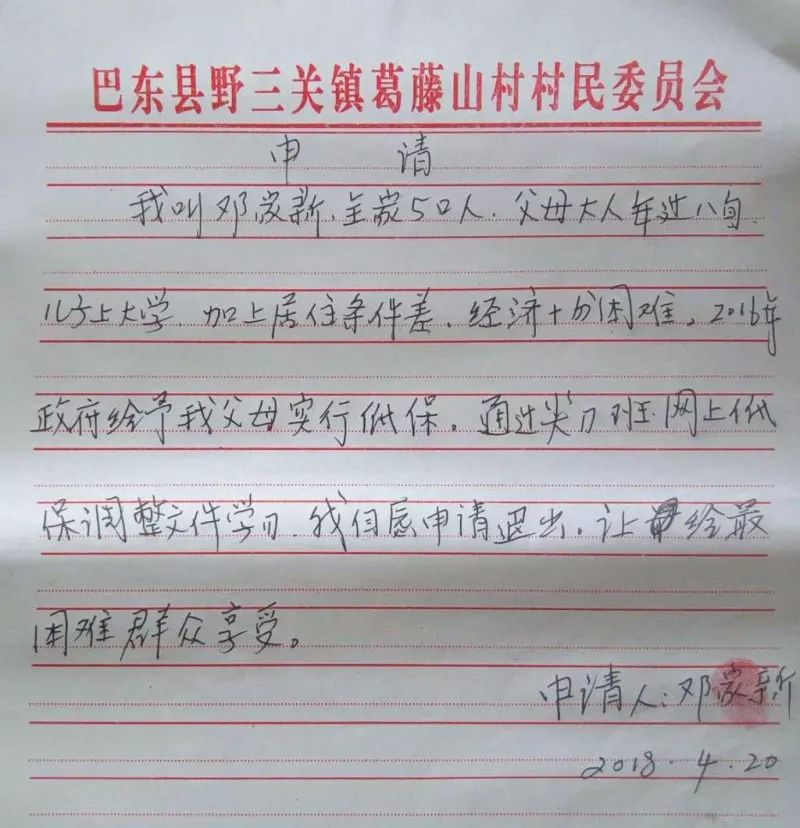 巴东县野三关镇葛藤山村村民委员会
申 请
我叫邓家新、全家5口人.父母大人年过八旬、
儿子上大学、加上居住条件差、经济十分困难。2016年
政府给予我父母实行低保。通过尖刀班网上低
保调整文件学习、我自愿申请退出.让给最
困难群众享受。
申请人:邓家新
2018.4.20